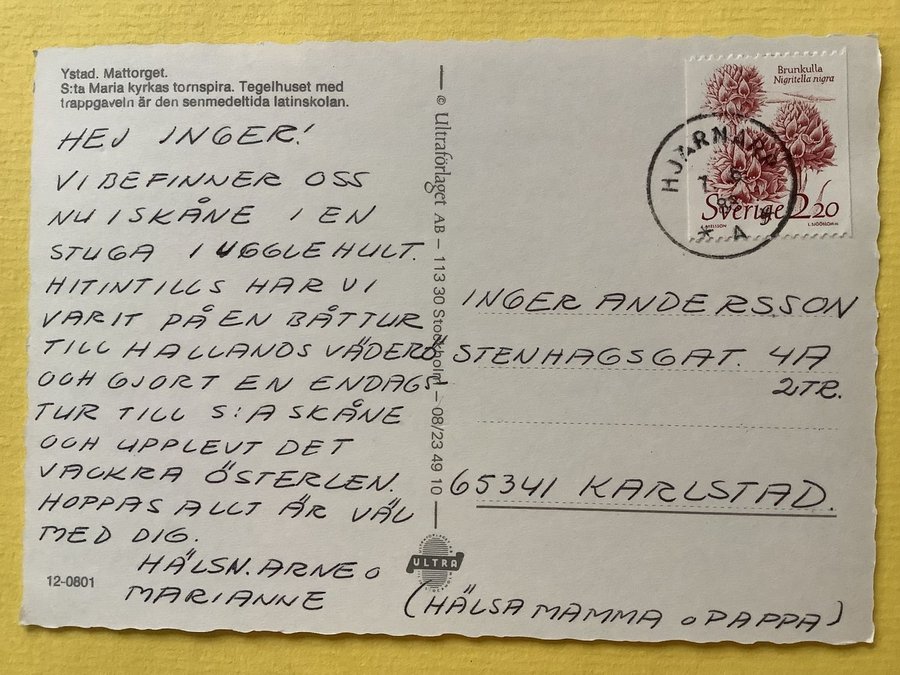 Ystad. Mattorget.
S:ta Maria kyrkas tornspira. Tegelhuset med
trappgaveln är den senmedeltida latinskolan.
HEJ INGER!
VI BEFINNER OSS
NU I SKÅNE I EN
STUGA I UGGLEHULT.
HITINTILLS HAR VI
VARIT PÅ EN BÅTTUR
TILL HALLANDS VÄDERÖ
OCH GJORT EN ENDAGS
TUR TILL S:A SKÅNE
OCH UPPLEVT DET
VACKRA ÖSTERLEN.
HOPPAS ALLT ÄR VÄL
MED DIG.
HÄLSN. ARNE O
MARIANNE
12-0801
© Ultraförlaget AB – 113 30 Stockholm – 08/23 49 10
ULTRA
Brunkulla
Nigritella nigra
Sverige 2.20
HJÄRNARP
A
INGER ANDERSSON
STENHAGSGAT. 4A
2TR.
65341 KARLSTAD.
(HÄLSA MAMMA O PAPPA)